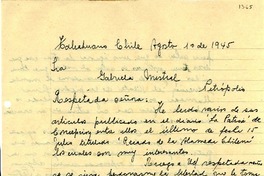 1365
Talcahuano Chile Agosto 1º de 1945
Sra
Gabriela Mistral
Petrópolis
Respetada señora: He leído varios de sus
artículos publicados en el diario "La Patria" de
Concepción, entre ellos el último de fecha 15
Julio titulado "Recado de la Alameda Chilena"
los cuales son muy interesantes.
Ruego a Ud respetada
perdonarme la libertad que le tomo